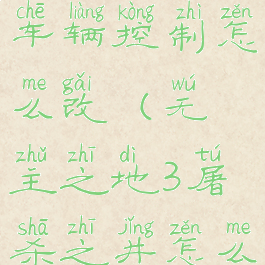 chē liàng kòng zhì zěn
车辆控制怎
me gǎi wú
么改（无
zhǔ zhī dì tú
主之地3屠
shā zhī jǐng zěn me
杀之井怎么